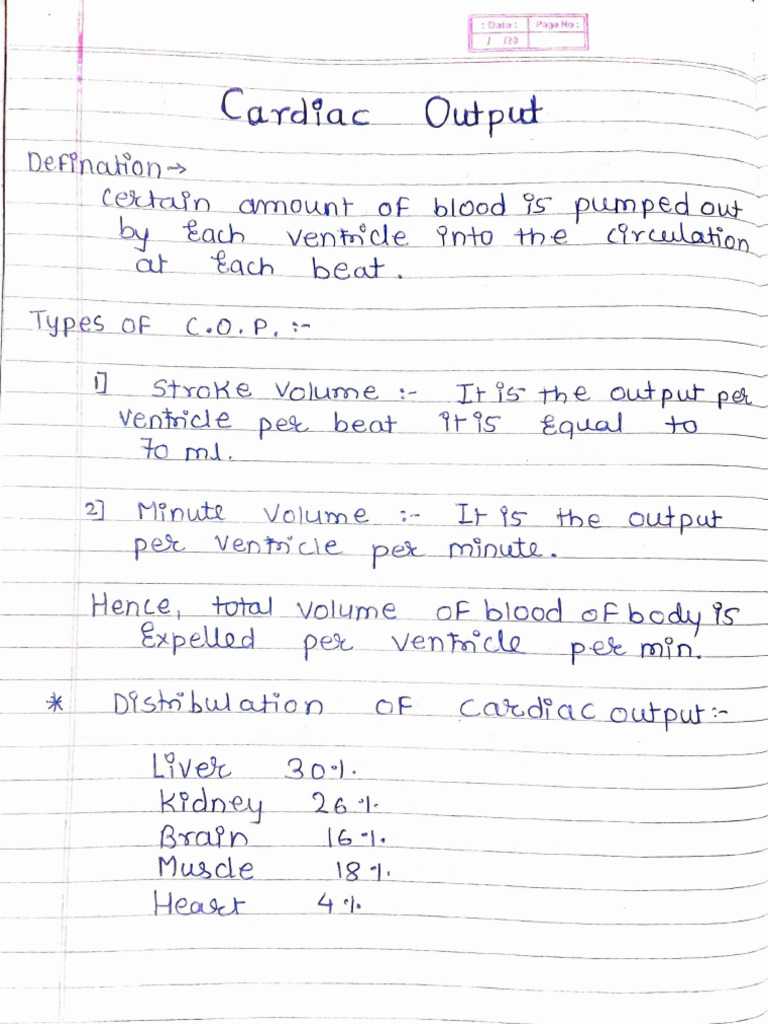 : Date : Page No :
/ /20
Cardiac Output
Defination→
Certain amount of blood is pumped out
by Each ventricle into the circulation
at Each beat.
Types of C.O.P. :-
1] Stroke Volume :- It is the output per
ventricle per beat it is Equal to
70 ml.
2] Minute Volume :- It is the output
per ventricle per minute.
Hence, total volume of blood of body is
Expelled per ventricle per min.
* Distribulation of cardiac output :-
Liver 30%.
Kidney 26%.
Brain 16%.
Muscle 18%.
Heart 4%.